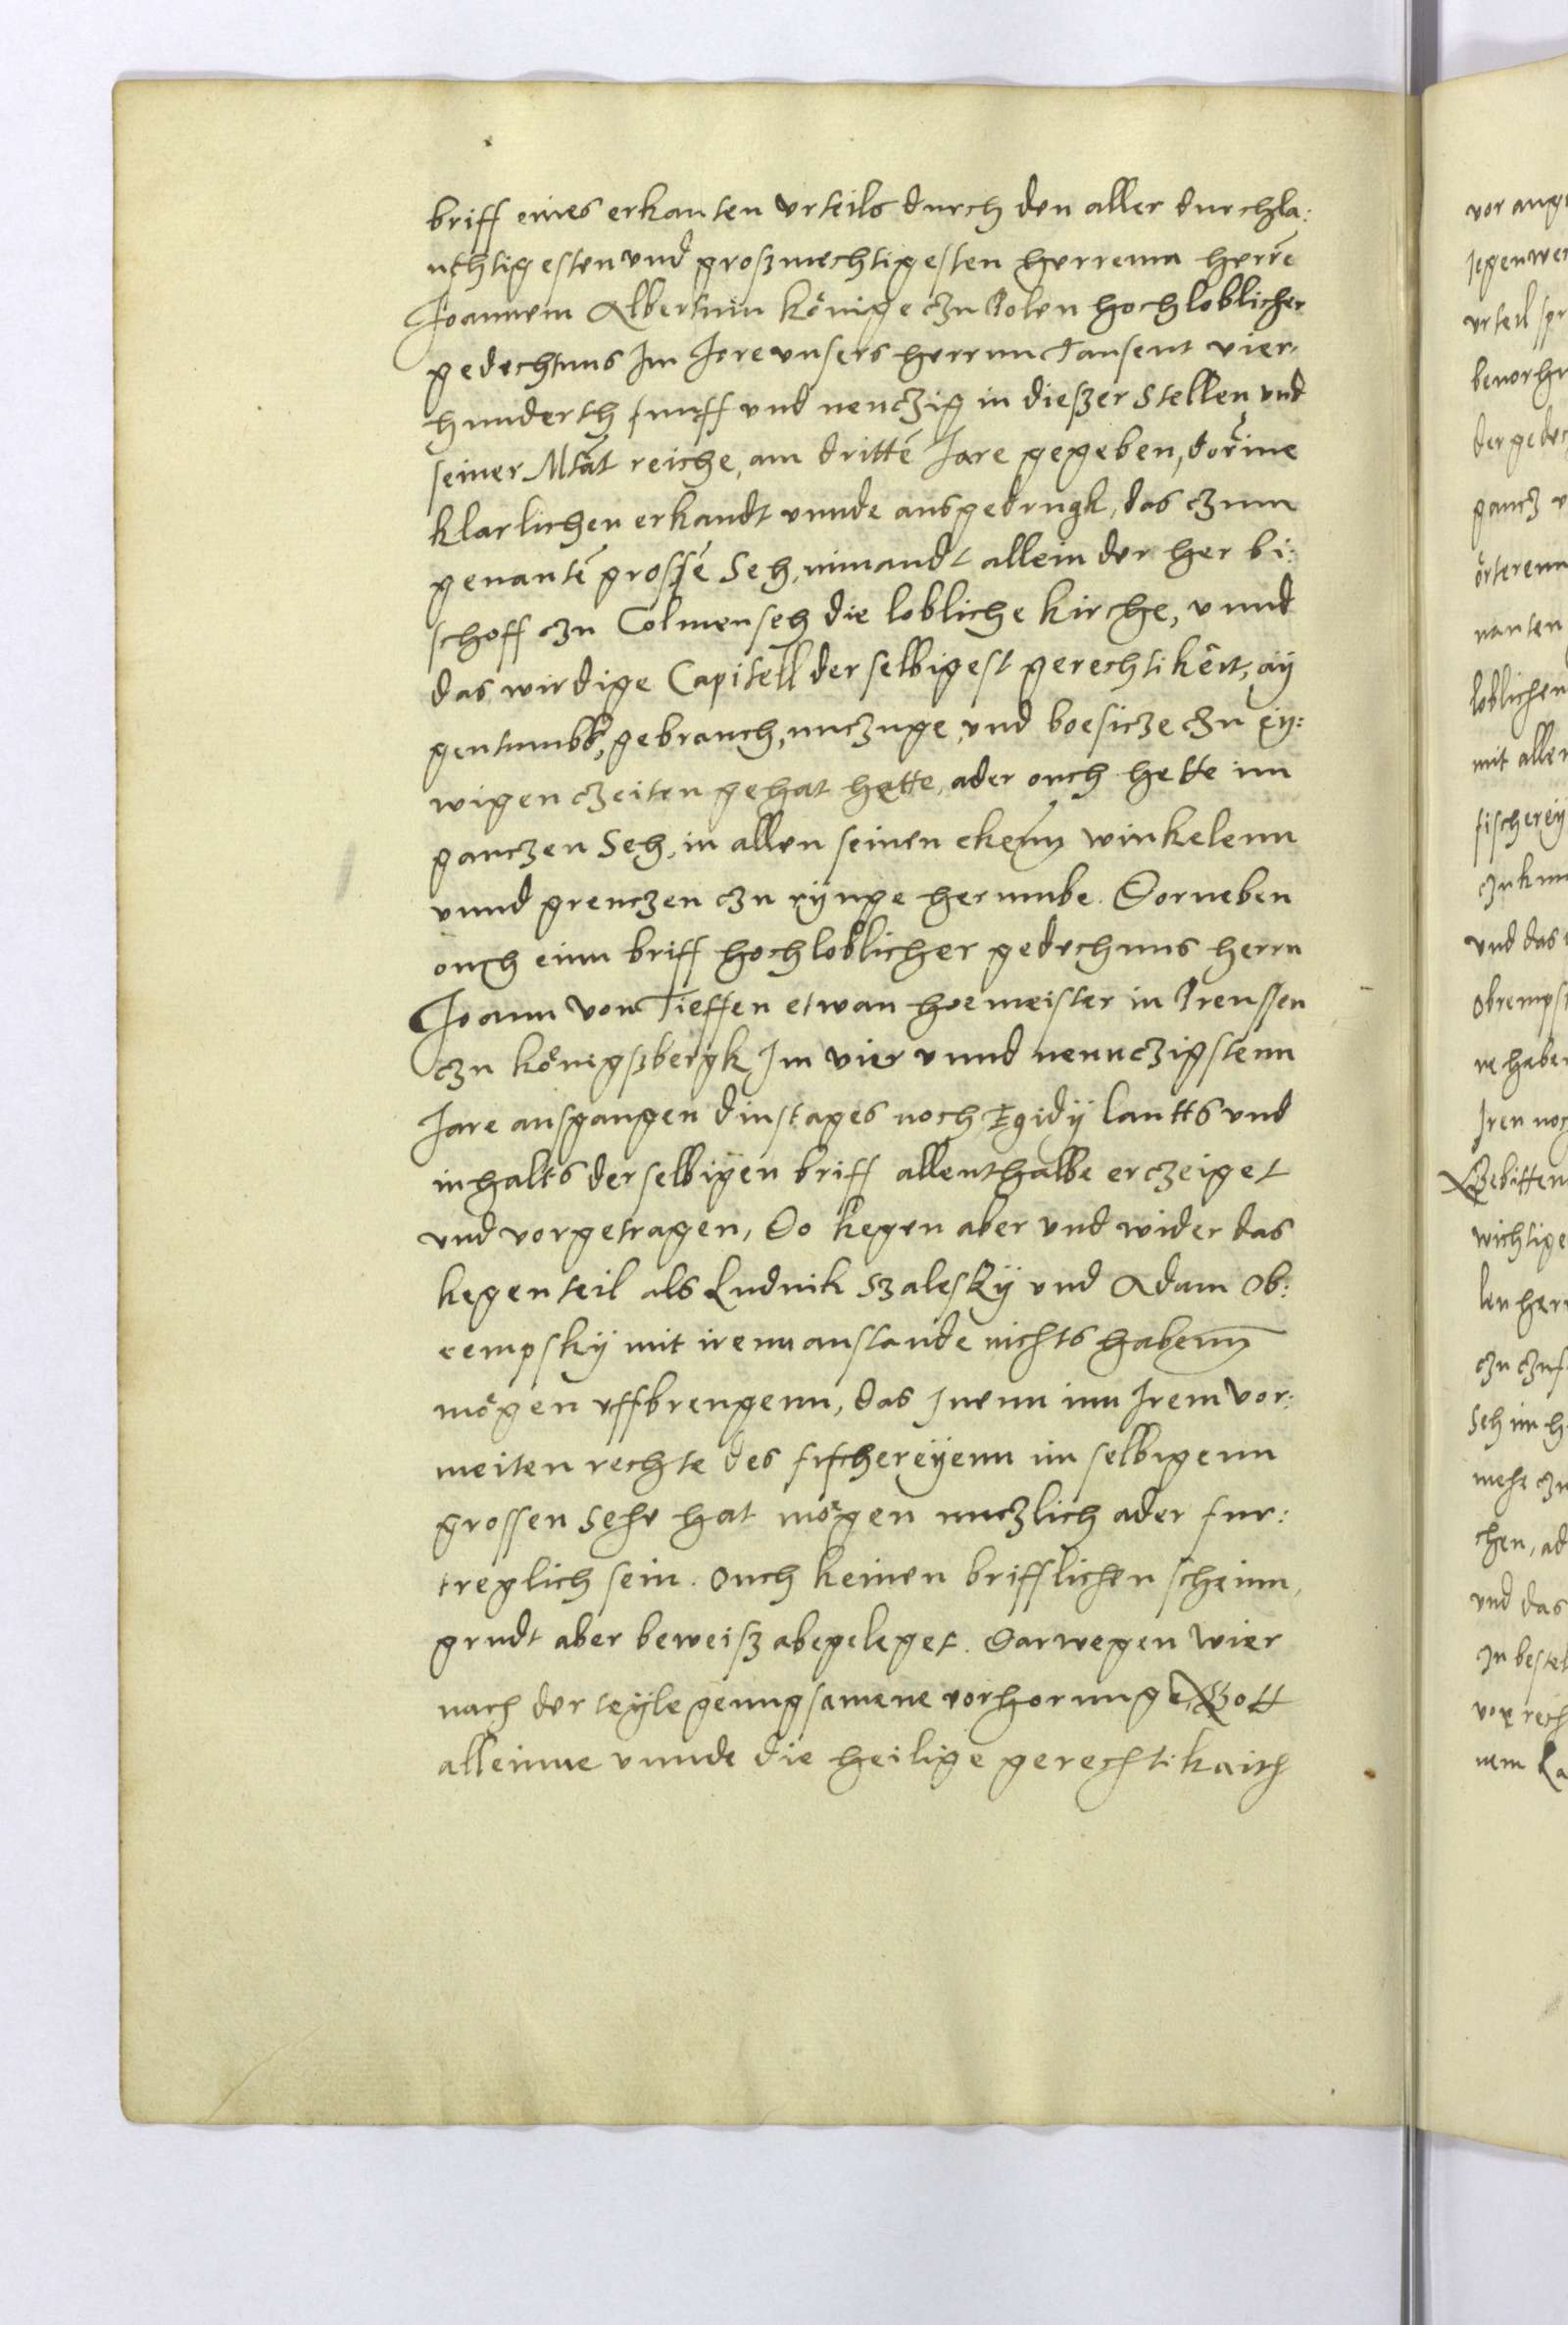 briff eines erkanten vrteils durch den aller durchla:
uchtigesten vnd großmechtigesten herrenn herrē
Joannem Albertum könige czu Polen hochloblicher
gedechtnus Im Jore vnsers herrnn Tausent vier,
hunderth funff vnd neuczig in dießer Stellen vnd
seiner Mtāt reiche, am drittē Jare gegeben, dorine
klarlichen erkandt vnnde ausgedrugk, das czum
genantē grossē Seh, nimandt allein der her bi:
schoff czu Colmenseh die lobliche kirche, vnnd
das wirdige Capitell derselbigest gerechtikeit, ay
gentumbß, gebrauch, nuczuge, vnd boesicze czu ey:
wigen czeiten gehat hette, ader ouch hette im
ganczen Seh, in allen seinen ekenn winkelenn
vnnd grenczen czu rynge herumbe. Dorneben
ouch einn briff hochloblicher gedechnus herrn
Joann von Tieffen etwan hoemeister in Preussen
czu königßbergk, Im vier vnnd neunczigstenn
Jare ausgangen dinstages noch Egidÿ lautts vnd
inhalts derselbigen briff allenthalbe erczeiget
vnd vorgetragen, Do kegen aber vnd wider das
kegenteil als Ludnik Szaleskÿ vnd Adam Ob:
rempskÿ mit irenn anstande nichts habenn
mögen vffbrengenn, das Inenn inn Irem vor:
meiten rechte des fischereÿenn im selbigenn
grossen Sehe hat mögen nuczlich ader fur:
treglich sein. Ouch keinen brifflichen scheinn,
grudt aber beweiß abgeleget. Darwegen wier
nach der teyle genugsamene vorhorunge, Gott
alleinne vnnde die heilige gerechtikaith
vor ang
Jegenwer
vrteil spr
benorhr
der gedec
gancz v
örterenn
nanten
loblichen
mit aller
fischerey
czukun
vnd das
Obremps
re haben
Iren noc
Gebitten
wichtige
len herr
czu czuf
Seh im h
mehr czu
chen, ad
vnd das
In bestel
vor rech
nem La